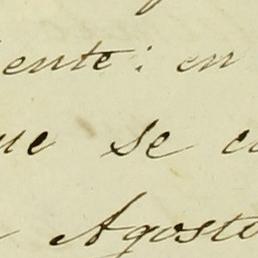 ente: en
ue se c
Agosto